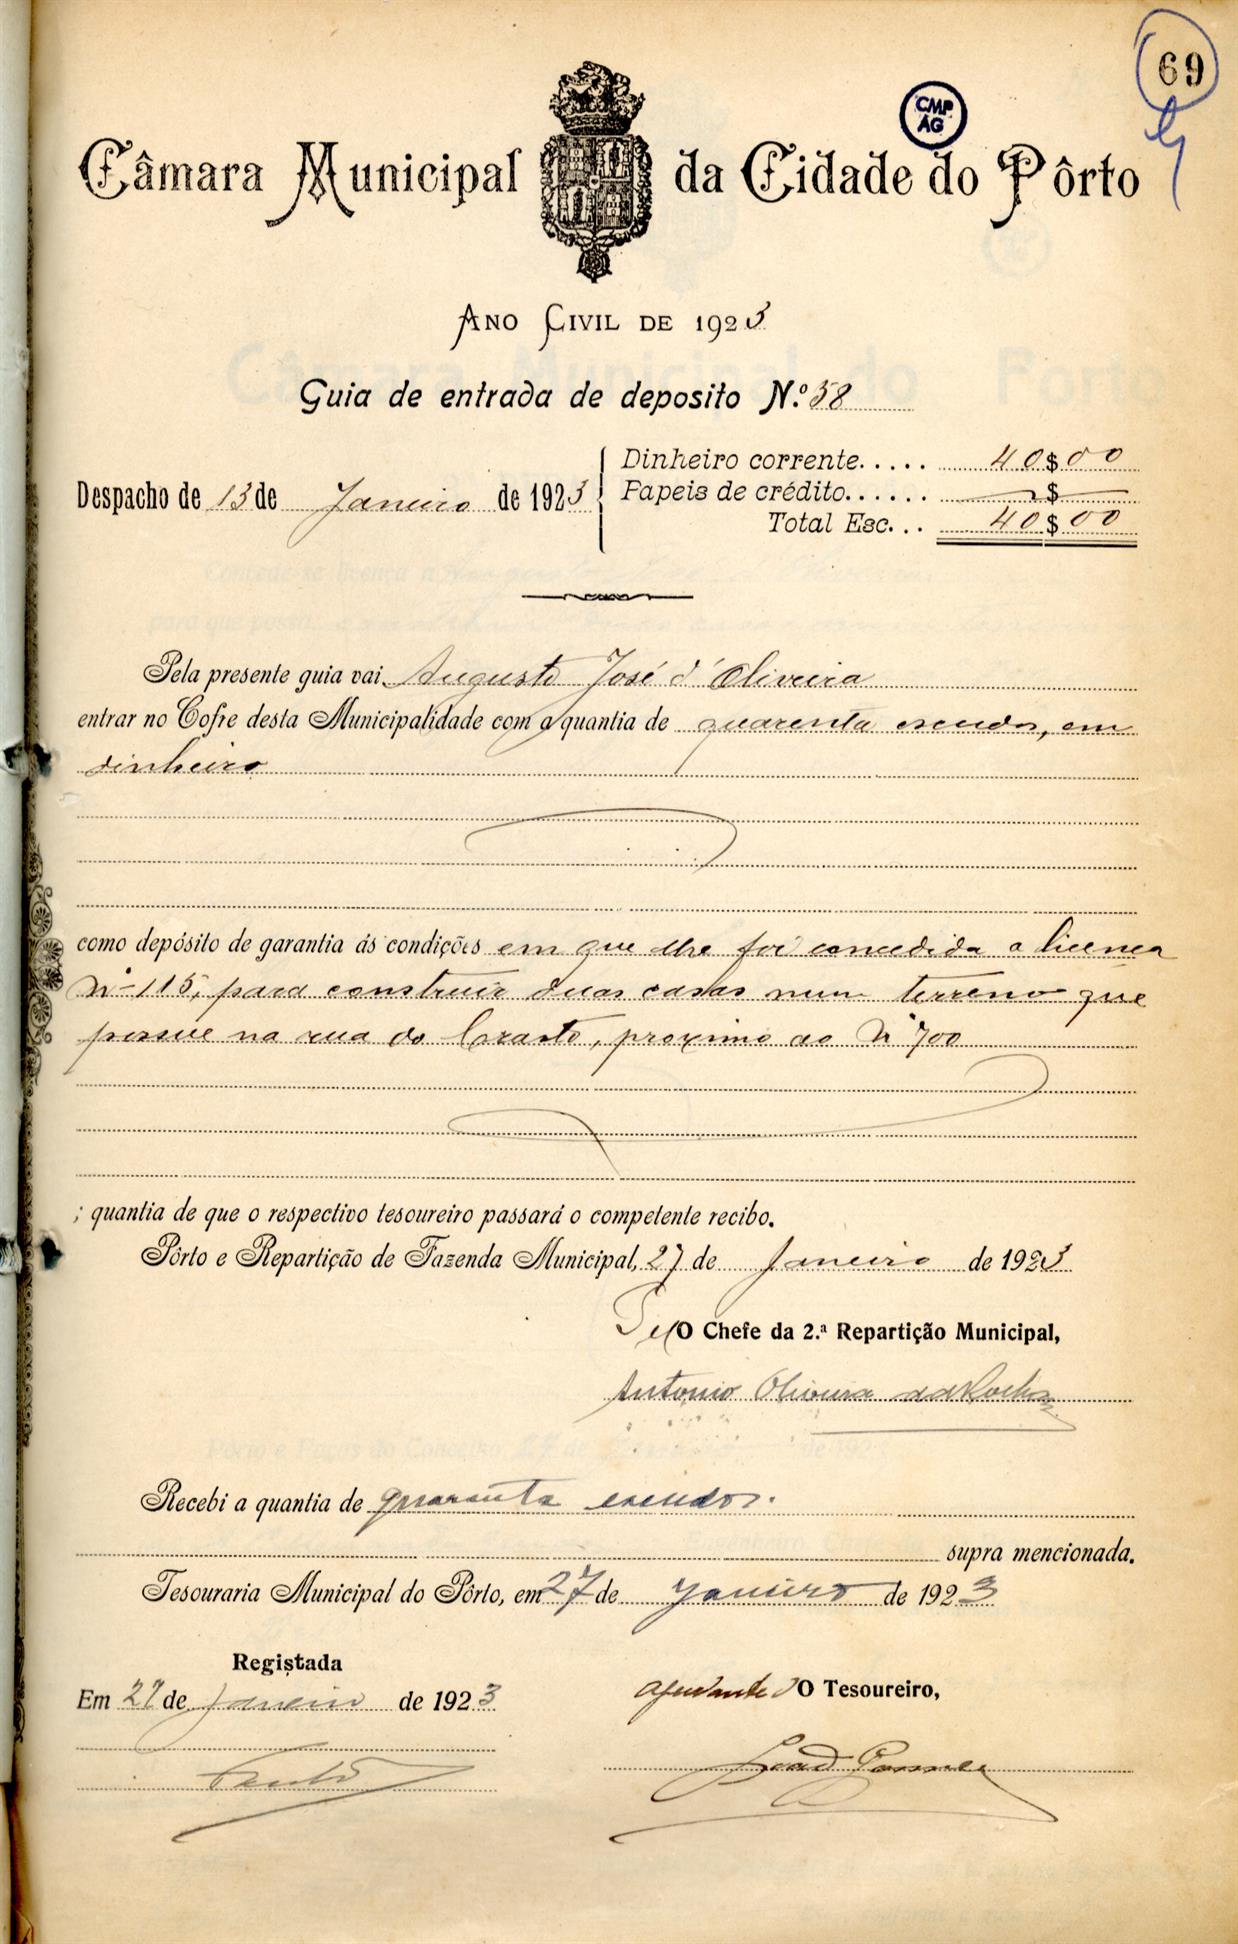 69
CMP
AG
Câmara Municipal da Cidade do Pôrto
Ano Civil de 1923
Guia de entrada de deposito N.º 58
Dinheiro corrente..... 40$00
Despacho de 13 de Janeiro de 1923 Papeis de crédito...... $
Total Esc... 40$00
Pela presente guia vai Augusto José d'Oliveira
entrar no Cofre desta Municipalidade com a quantia de quarenta escudos, em
dinheiro
como depósito de garantia ás condições em que lhe foi concedida a licença
Nº 115, para construir duas casas num terreno que
possue na rua do Crasto, proximo ao Nº 700
; quantia de que o respectivo tesoureiro passará o competente recibo.
Pôrto e Repartição de Fazenda Municipal, 27 de Janeiro de 1923
O Chefe da 2.ª Repartição Municipal,
Antonio Oliveira da Rocha
Recebi a quantia de quarenta escudos.
supra mencionada.
Tesouraria Municipal do Pôrto, em 27 de Janeiro de 1923
Registada
Em 27 de Janeiro de 1923
ajudante d'O Tesoureiro,